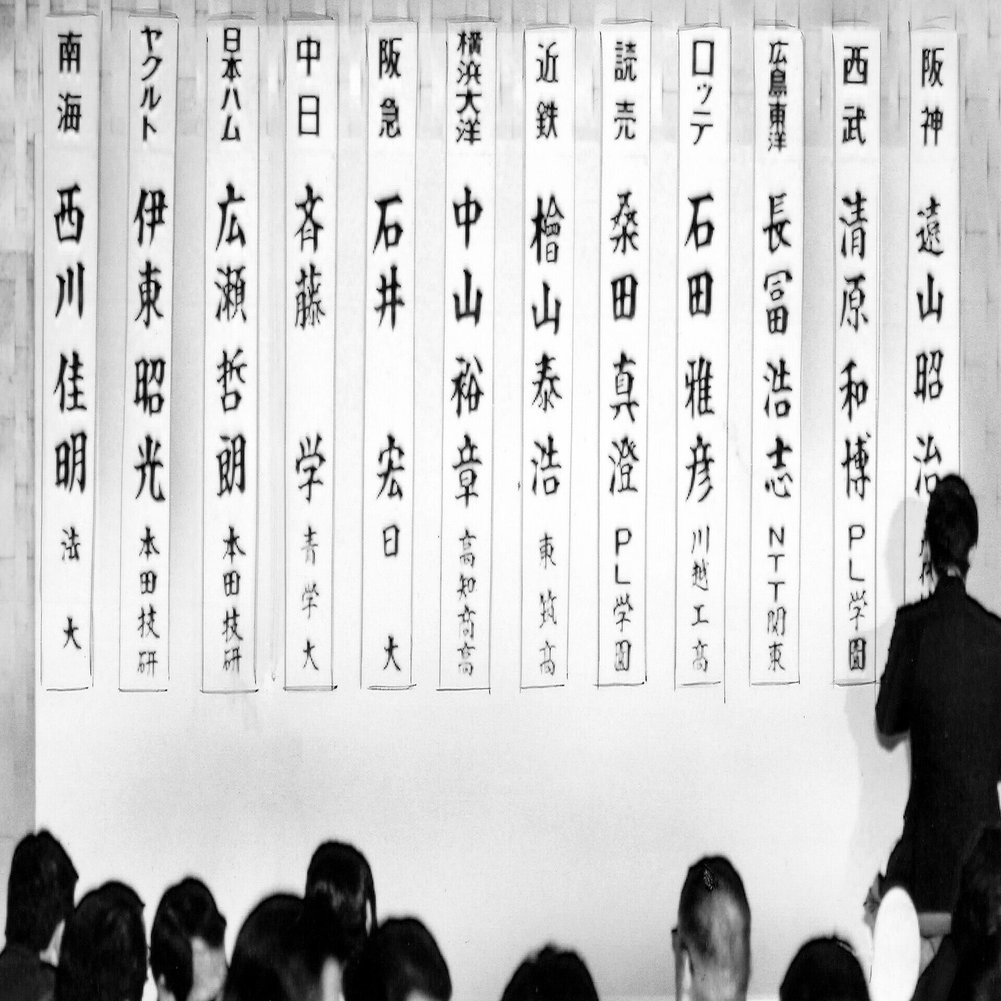 阪神 遠山昭治
西武 清原和博 PL学園
広島東洋 長冨浩志 NTT関東
ロッテ 石田雅彦 川越工高
読売 桑田真澄 PL学園
近鉄 桧山泰浩 東筑高
横浜大洋 中山裕章 高知商高
阪急 石井宏 日大
中日 斉藤学 青学大
日本ハム 広瀬哲朗 本田技研
ヤクルト 伊東昭光 本田技研
南海 西川佳明 法大